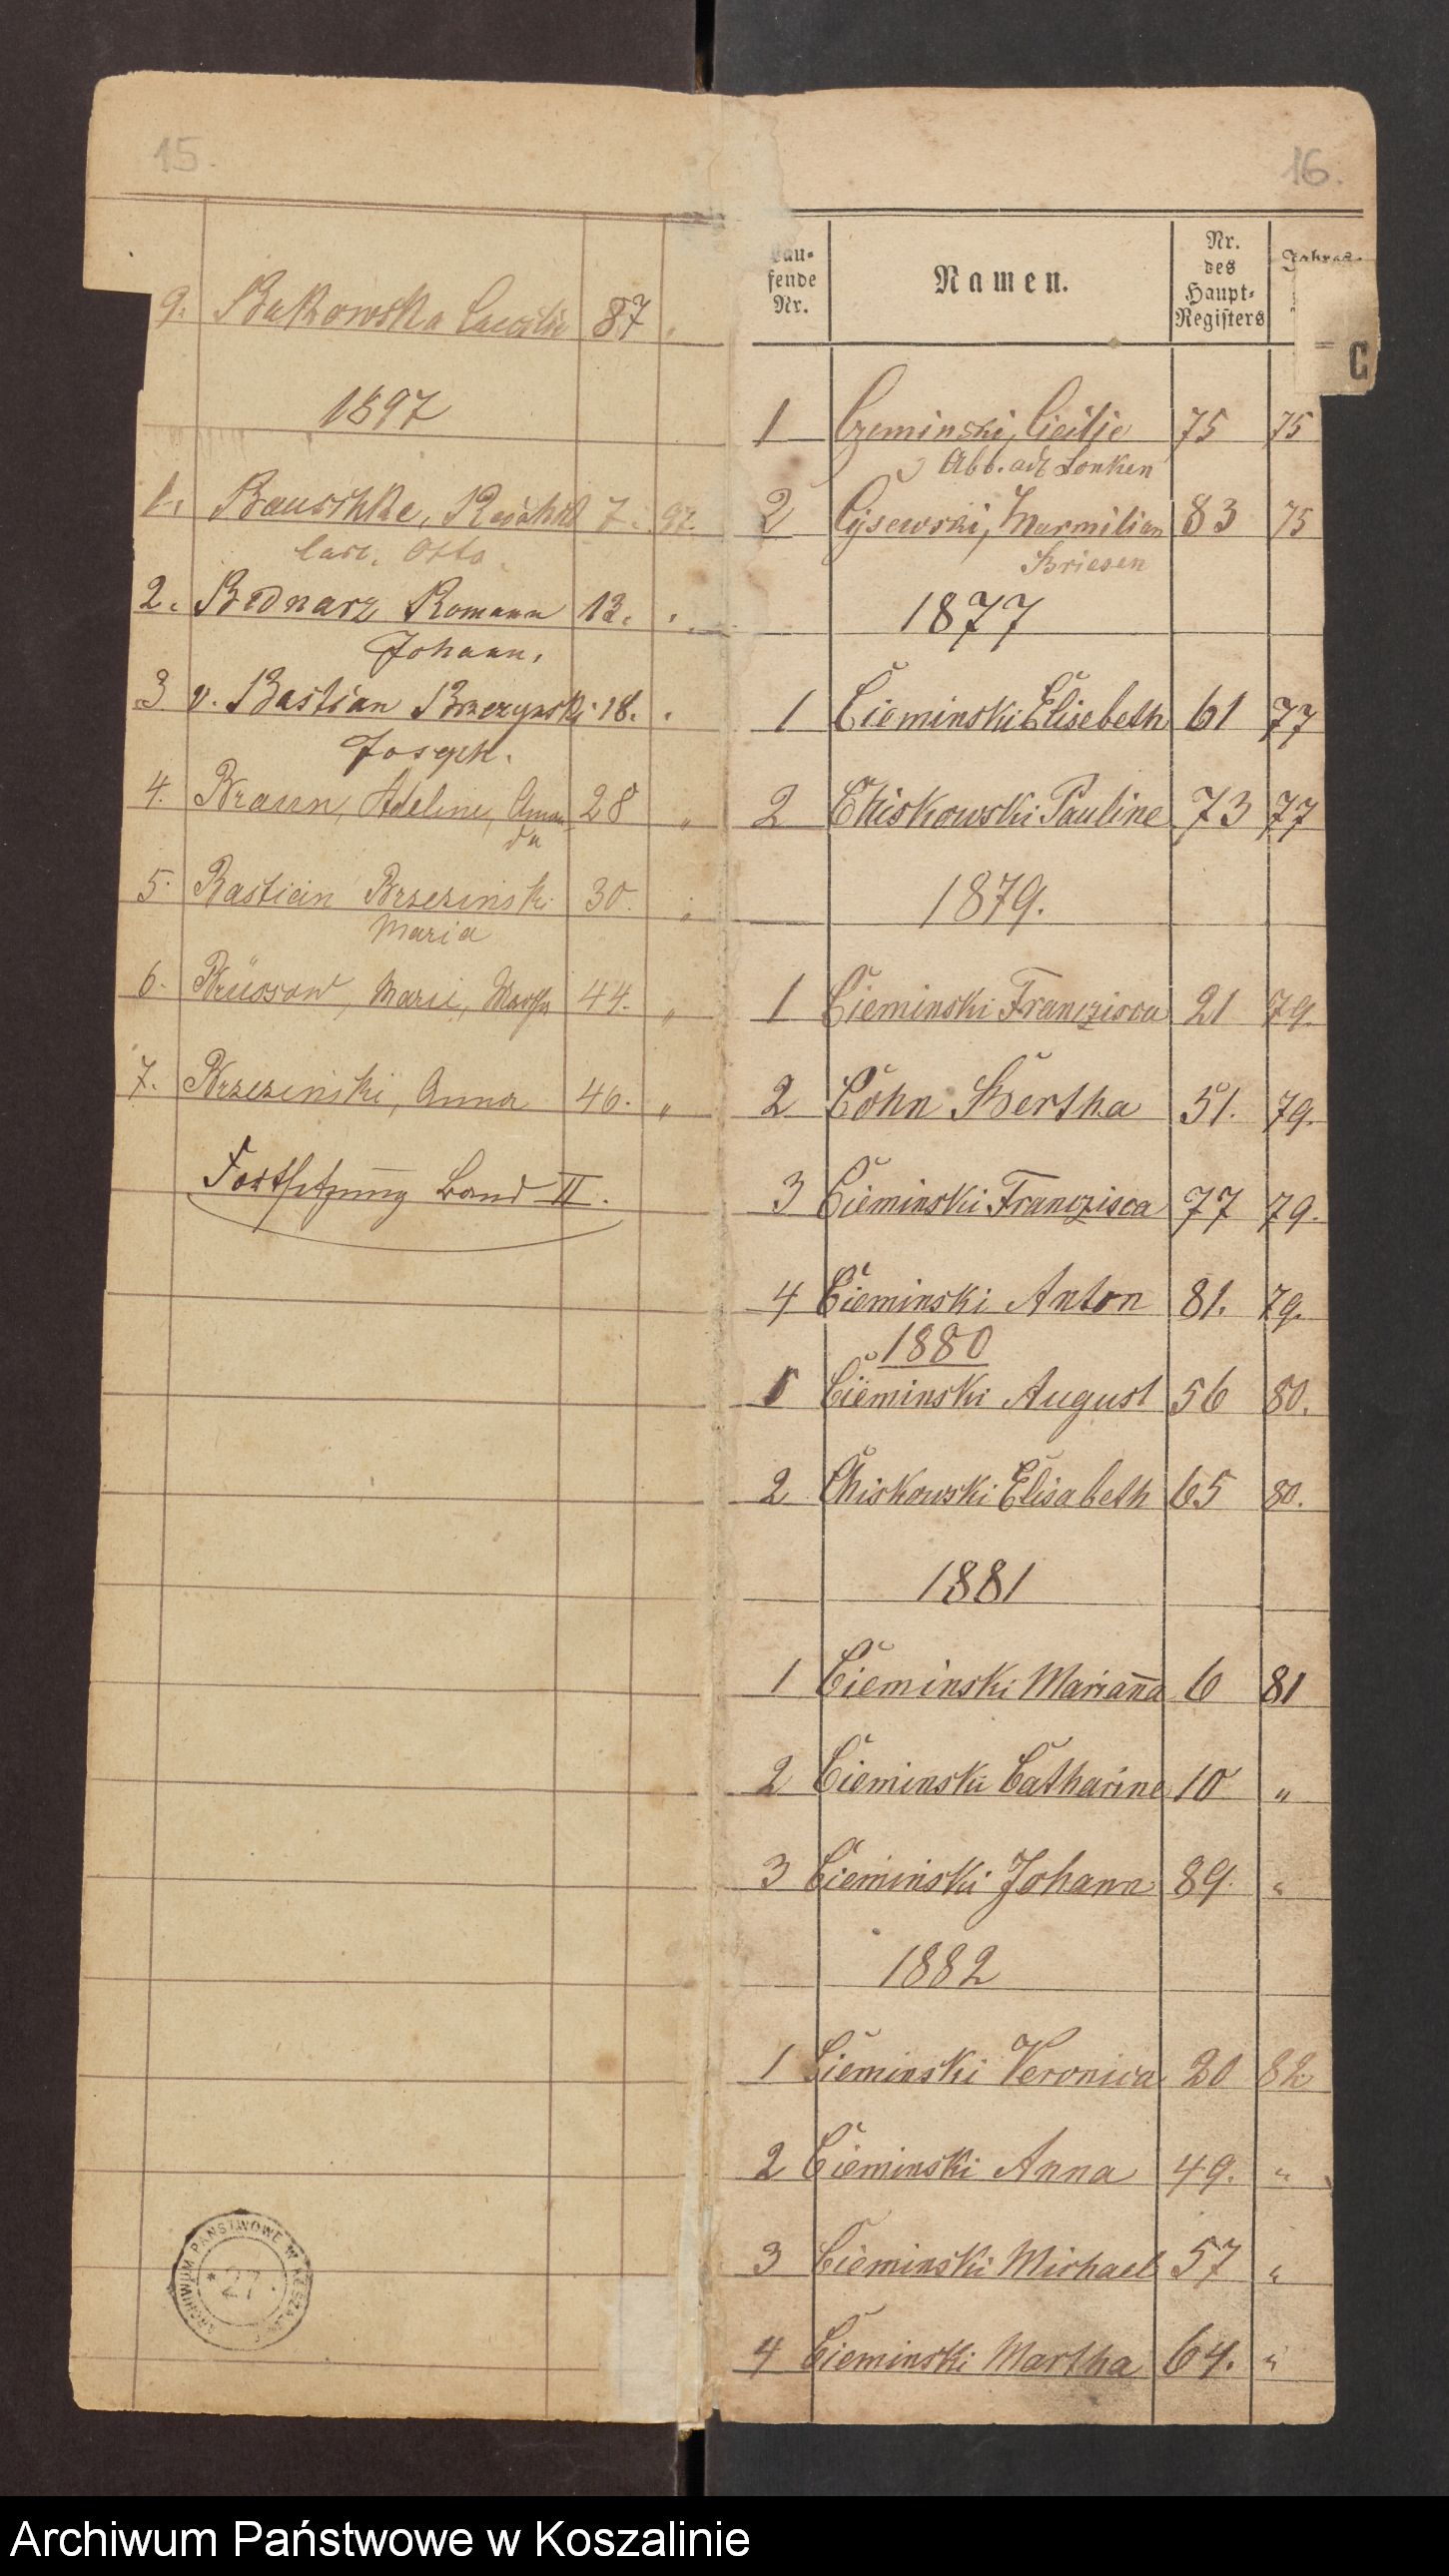 15.
9. Bukowska Caecilie 87 "
1897
1. Bauschke, Reinhold 7. 97.
Carl. Otto.
2. Bednarz Romann 13. "
Johann.
3 v. Bastian Brzezynski 18. "
Joseph.
4. Braun, Adeline, Aman- 28 "
da
5. Bastian Brzezinski 30. "
Maria
6. Brüssow, Marie, Martha 44. "
7. Brzezinski, Anna 46. "
Fortsetzung Band II.
ARCHIWUM PAŃSTWOWE W KOSZALINIE
* 27 *
16.
Lau-
fende
Nr.
Namen.
Nr.
des
Haupt-
Registers
Jahres-
C
1 Czeminski, Cicilie 75 75
Abb. adl Lonken
2 Cysewski, Maxmilian 83 75
Briesen
1877
1 Cieminski Elisebeth 61 77
2 Chiskowski Pauline 73 77
1879.
1 Cieminski Franczisca 21 79.
2 Cohn Bertha 51. 79.
3 Cieminski Franczisca 77 79.
4 Cieminski Anton 81. 79.
1880
1 Cieminski August 56 80.
2 Chiskowski Elisabeth 65 80.
1881
1 Cieminski Marian̄a 6 81
2 Cieminski Catharine 10 "
3 Cieminski Johann 89. "
1882
1 Cieminski Veronica 20 82
2 Cieminski Anna 49. "
3 Cieminski Michael 57 "
4 Cieminski Martha 64. "
Archiwum Państwowe w Koszalinie